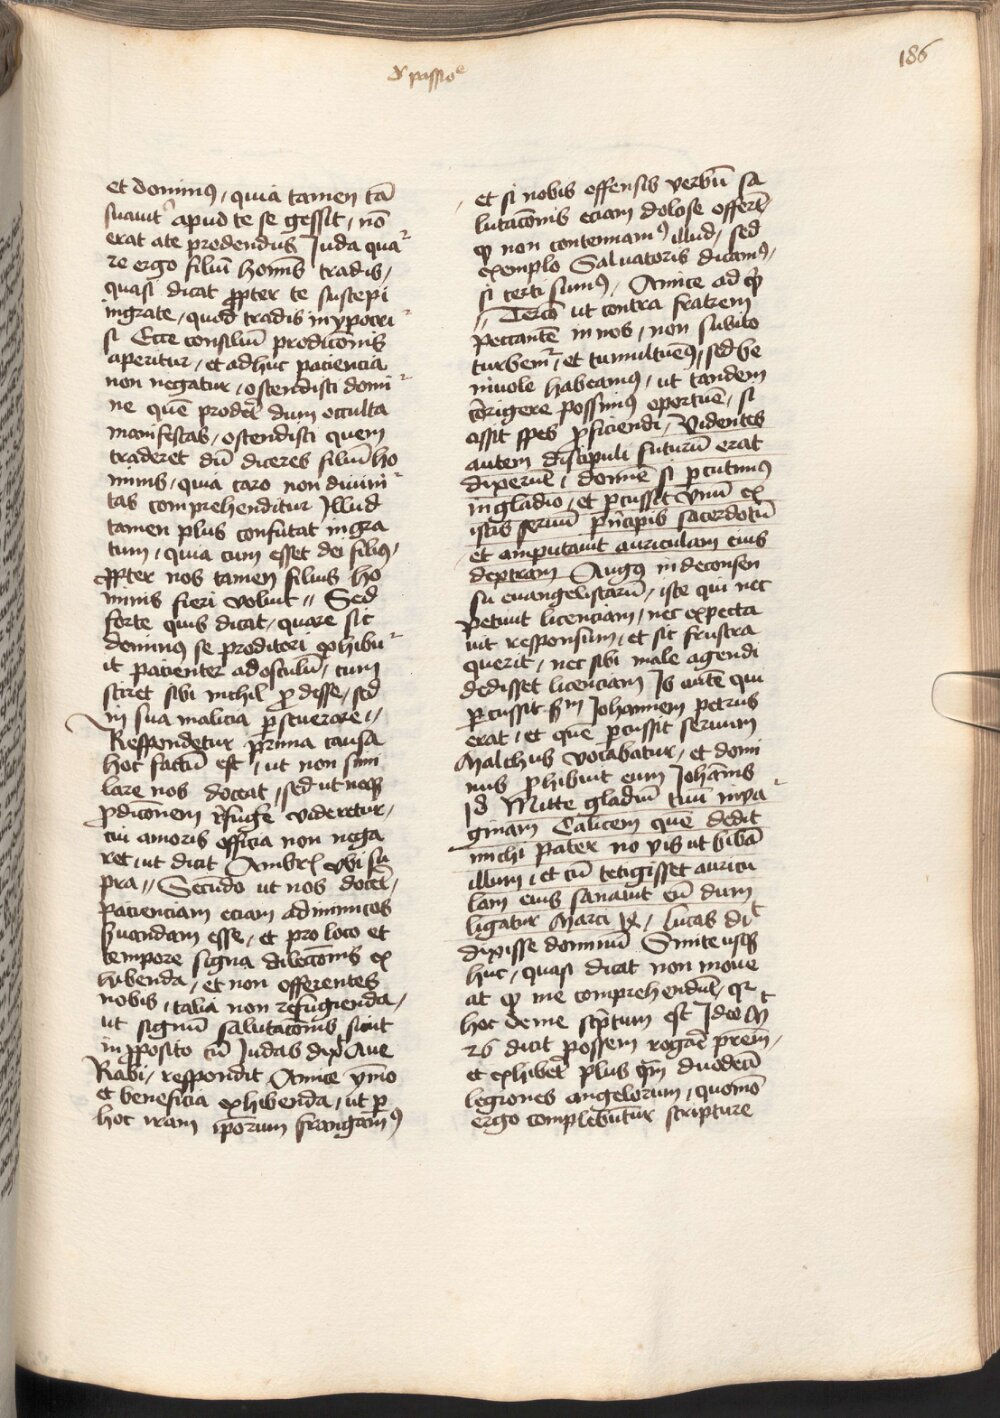 186
passio
et dominꝰ, quia tamen tā
suauit᷒ apud te se gessit, nō
erat ate prodendus Juda qua
re ergo filiū hoīnis tradis,
quasi dicat ꝓpter te suscepi
ingrate, quod tradis in ypocri
si Ecce consiliū prodicōnis
aperitur, et adhuc paciencia
non negatur, ostendisti domi
ne quē proderꝫ dum occulta
manifestas, ostendisti quem
traderet dū diceres filiū ho
minis, quia caro non diuini
tas comprehenditur Illud
tamen plus confutat ingra
tum, quia cum esset dei filiꝰ,
ꝓpter nos tamen filius ho
minis fieri voluit // Sed
forte quis dicat, quare sic
dominus se proditori exhibu
it pacienter ad osculū, cum
sciret sibi nichil ꝓdesse, sed
in sua malicia ꝑseuerare //
Respondetur prima causa
hoc factū est, ut non simi
lare nos doceat, sed ut neqꝫ
ꝓdicōnem refuge videretur,
cui amoris officia non nega
ret, ut dicit Ambrꝫ vbi su
pra // Secūdo ut nos docerꝫ,
pacienciam eciam ad inimicos
ẜuandam esse, et pro loco et
tempore signa dilectōnis ex
hibenda, et non offerentes
nobis, talia non refugienda,
ut signū salutacōnis sicut
in ꝓposito cū Judas dixꝫ Aue
Rabi, respondit Amice ymo
et beneficia exhibenda, ut ꝑ
hoc iram ip̄orum frangamꝰ
et si nobis offensis verbū sa
lutacōnis eciam dolose offertꝫ
ꝙ non contennamꝰ illud, sed
exemplo Saluatoris dicamꝰ,
si certi sumꝰ, Amice ad qd̄
// Tercō ut contra fratrem
peccantē in nos, non subito
turbemꝛ, et tumultuemꝰ, sed be
niuole habeamꝰ, ut tandem
corigere possimꝰ oportuē, si
assit spes ꝓficiendi, Videntes
autem discipuli futurū erat
dixerūt, domine si ꝑcutimꝰ
in gladio, et ꝑcussit vnū ex
istis seruū prīcipis sacerdotū
et amputauit auriculam eius
dextram Augꝰ in de consen
su euangelistarū, iste qui nec
petiuit licenciam, nec expecta
uit responsum, et sic frustra
querit, nec sibi male agendi
dedisset licenciam Is autē qui
ꝑcussit ẜm Johannem petrus
erat, et quē ꝑcussit seruum
Malchus vocabatur, et domi
nus ꝓhibuit eum Johānis
18 Mitte gladiū tuū in va
ginam Calicem quē dedit
michi pater nō vis ut bibā
illum, et cū tetigisset auricu
lam eius sanauit eū dum
ligatur Marci
dixisse dominū Sinite usqꝫ
huc, quasi dicat non moue
at ꝙ me comprehendūt, qꝛ
hoc de me scp̄tum est Ideo M
26 dicit possem rogare prēm,
et exhiberꝫ plus qm̄ duodecī
legiones angelorum, quomō
ergo complebuntur scripture